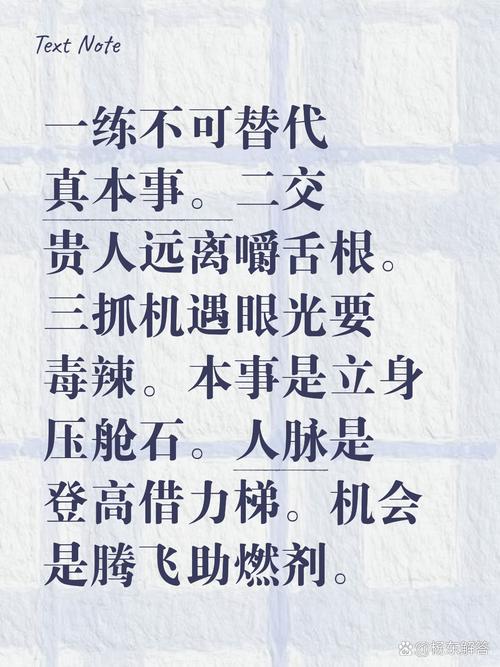 Text Note
一练不可替代
真本事。二交
贵人远离嚼舌根。
三抓机遇眼光要
毒辣。本事是立身
压舱石。人脉是
登高借力梯。机会
是腾飞助燃剂。
@杨东解答